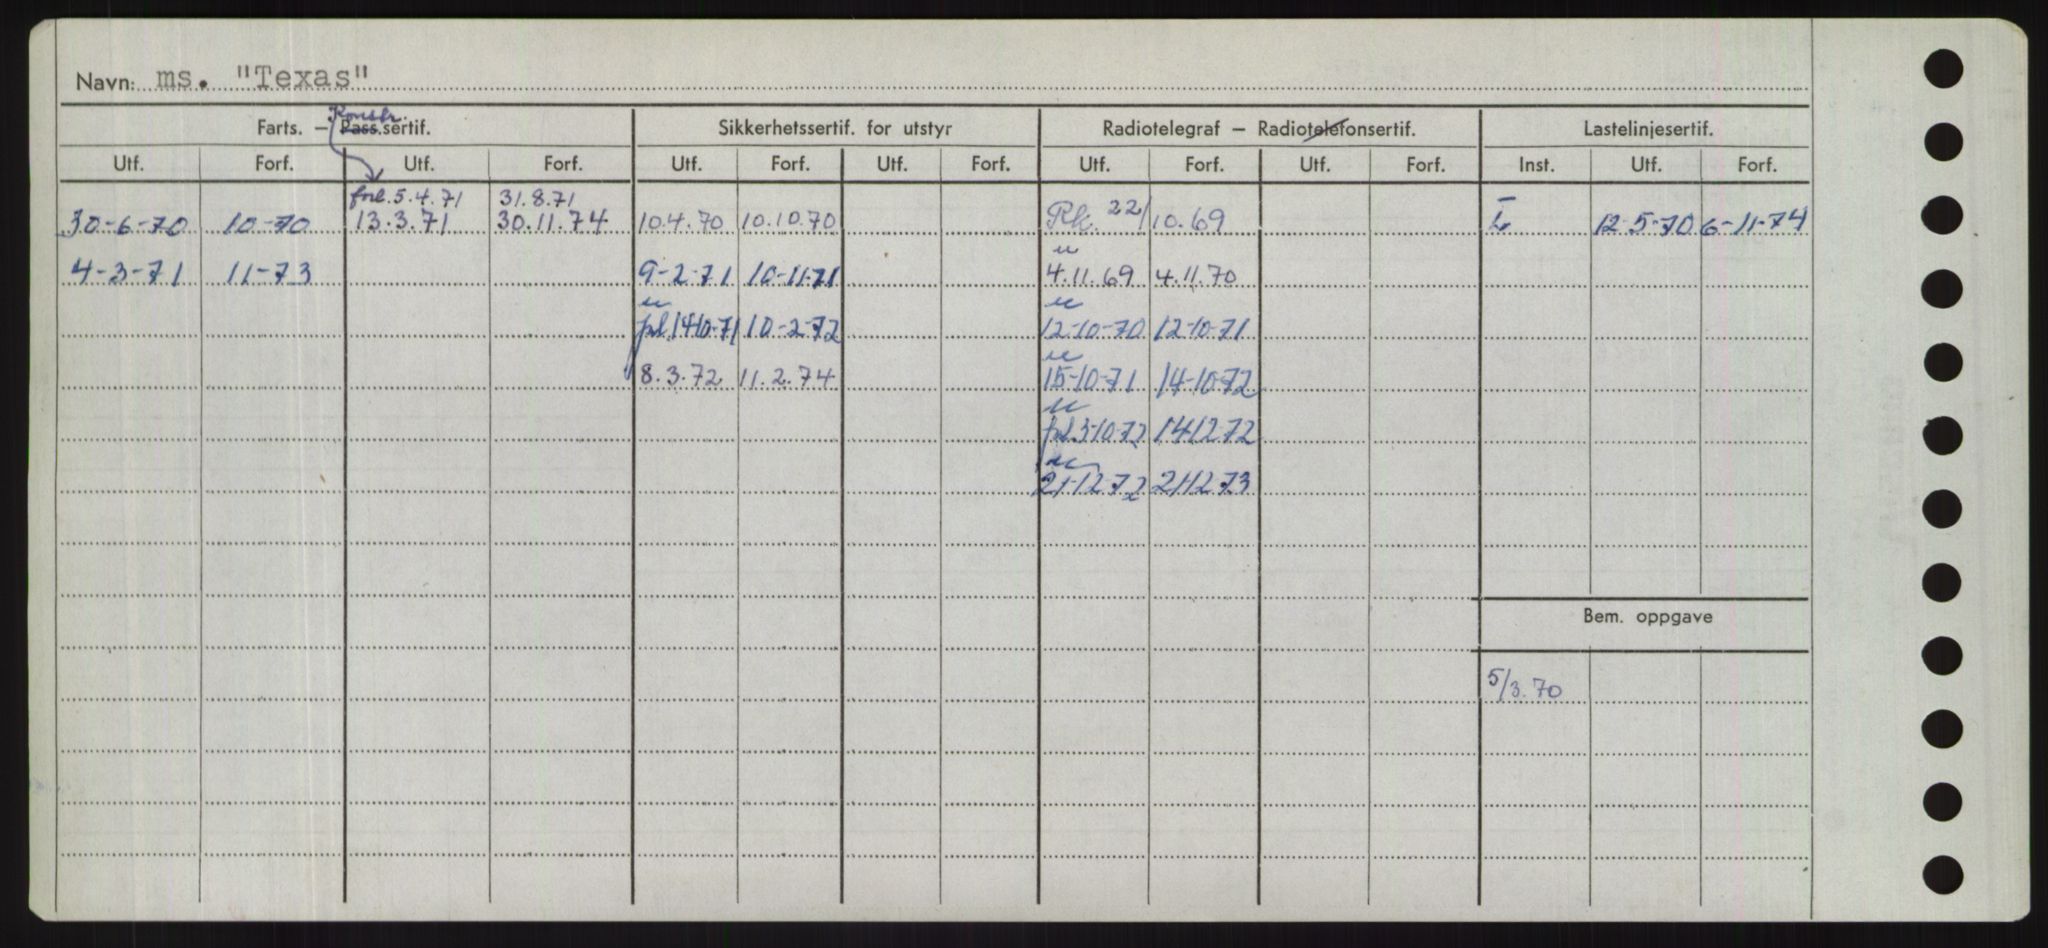 Navn: ms. "Texas"
Konstr.
Farts. – Pass.sertif. Sikkerhetssertif. for utstyr Radiotelegraf – Radiotelefonsertif. Lastelinjesertif.
Utf. Forf. Utf. Forf. Utf. Forf. Utf. Forf. Utf. Forf. Utf. Forf. Inst. Utf. Forf.
5.4.71 31.8.71
30-6-70 10-70 13.3.71 30.11.74 10.4.70 10.10.70 Rk. 22/10.69 12-5-70 6-11-74
u
4-3-71 11-73 9-2-71 10-11-71 4.11.69 4.11.70
u u
pl. 14-10-71 10-2-72 12-10-70 12-10-71
u
8.3.72 11.2.74 15-10-71 14-10-72
u
pl. 3-10-72 14-12-72
u
21-12-72 21-12-73
Bem. oppgave
5/3.70